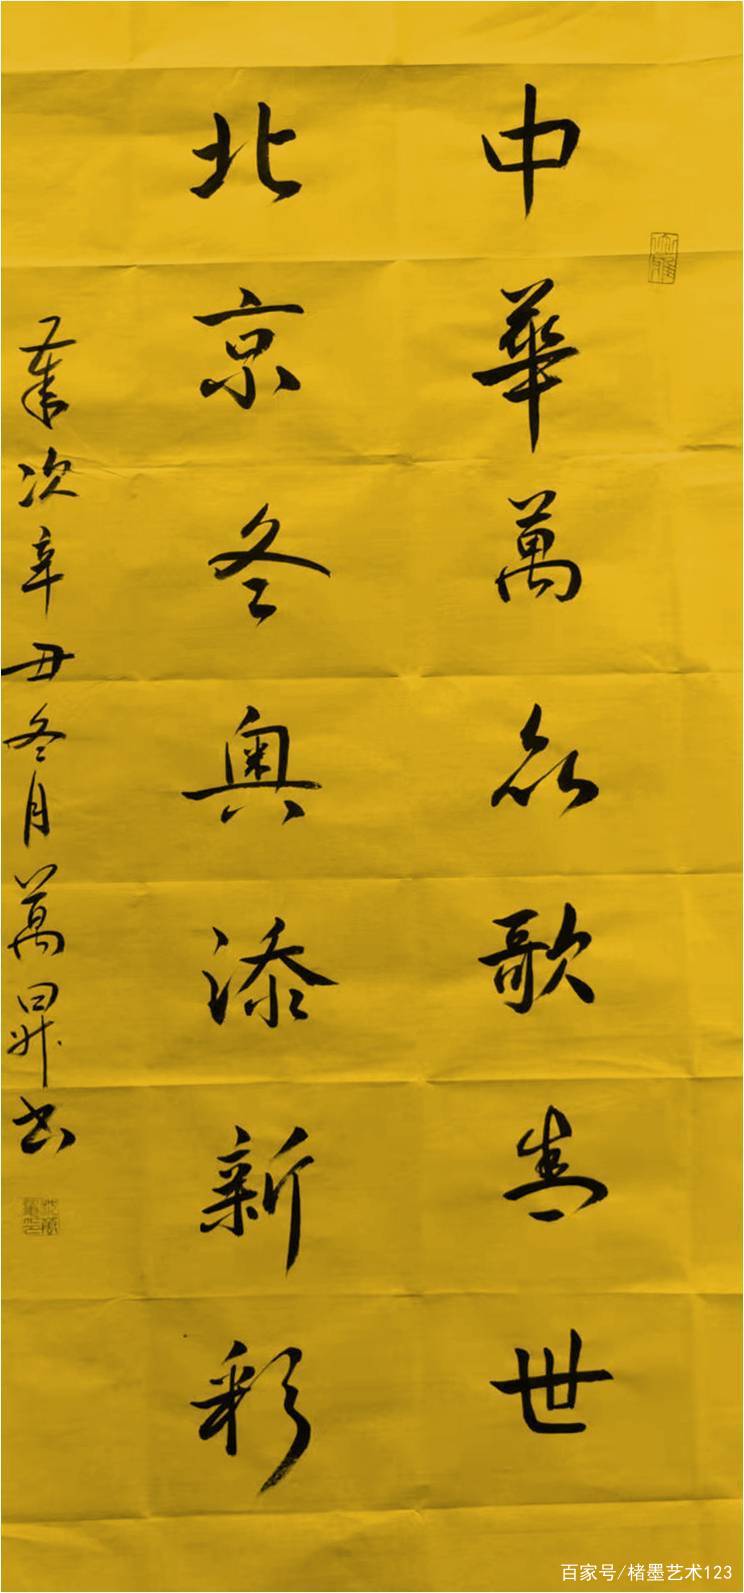 中華萬众歌盛世
北京冬奥添新彩
歲次辛丑冬月萬昇书
百家号/楮墨艺术123